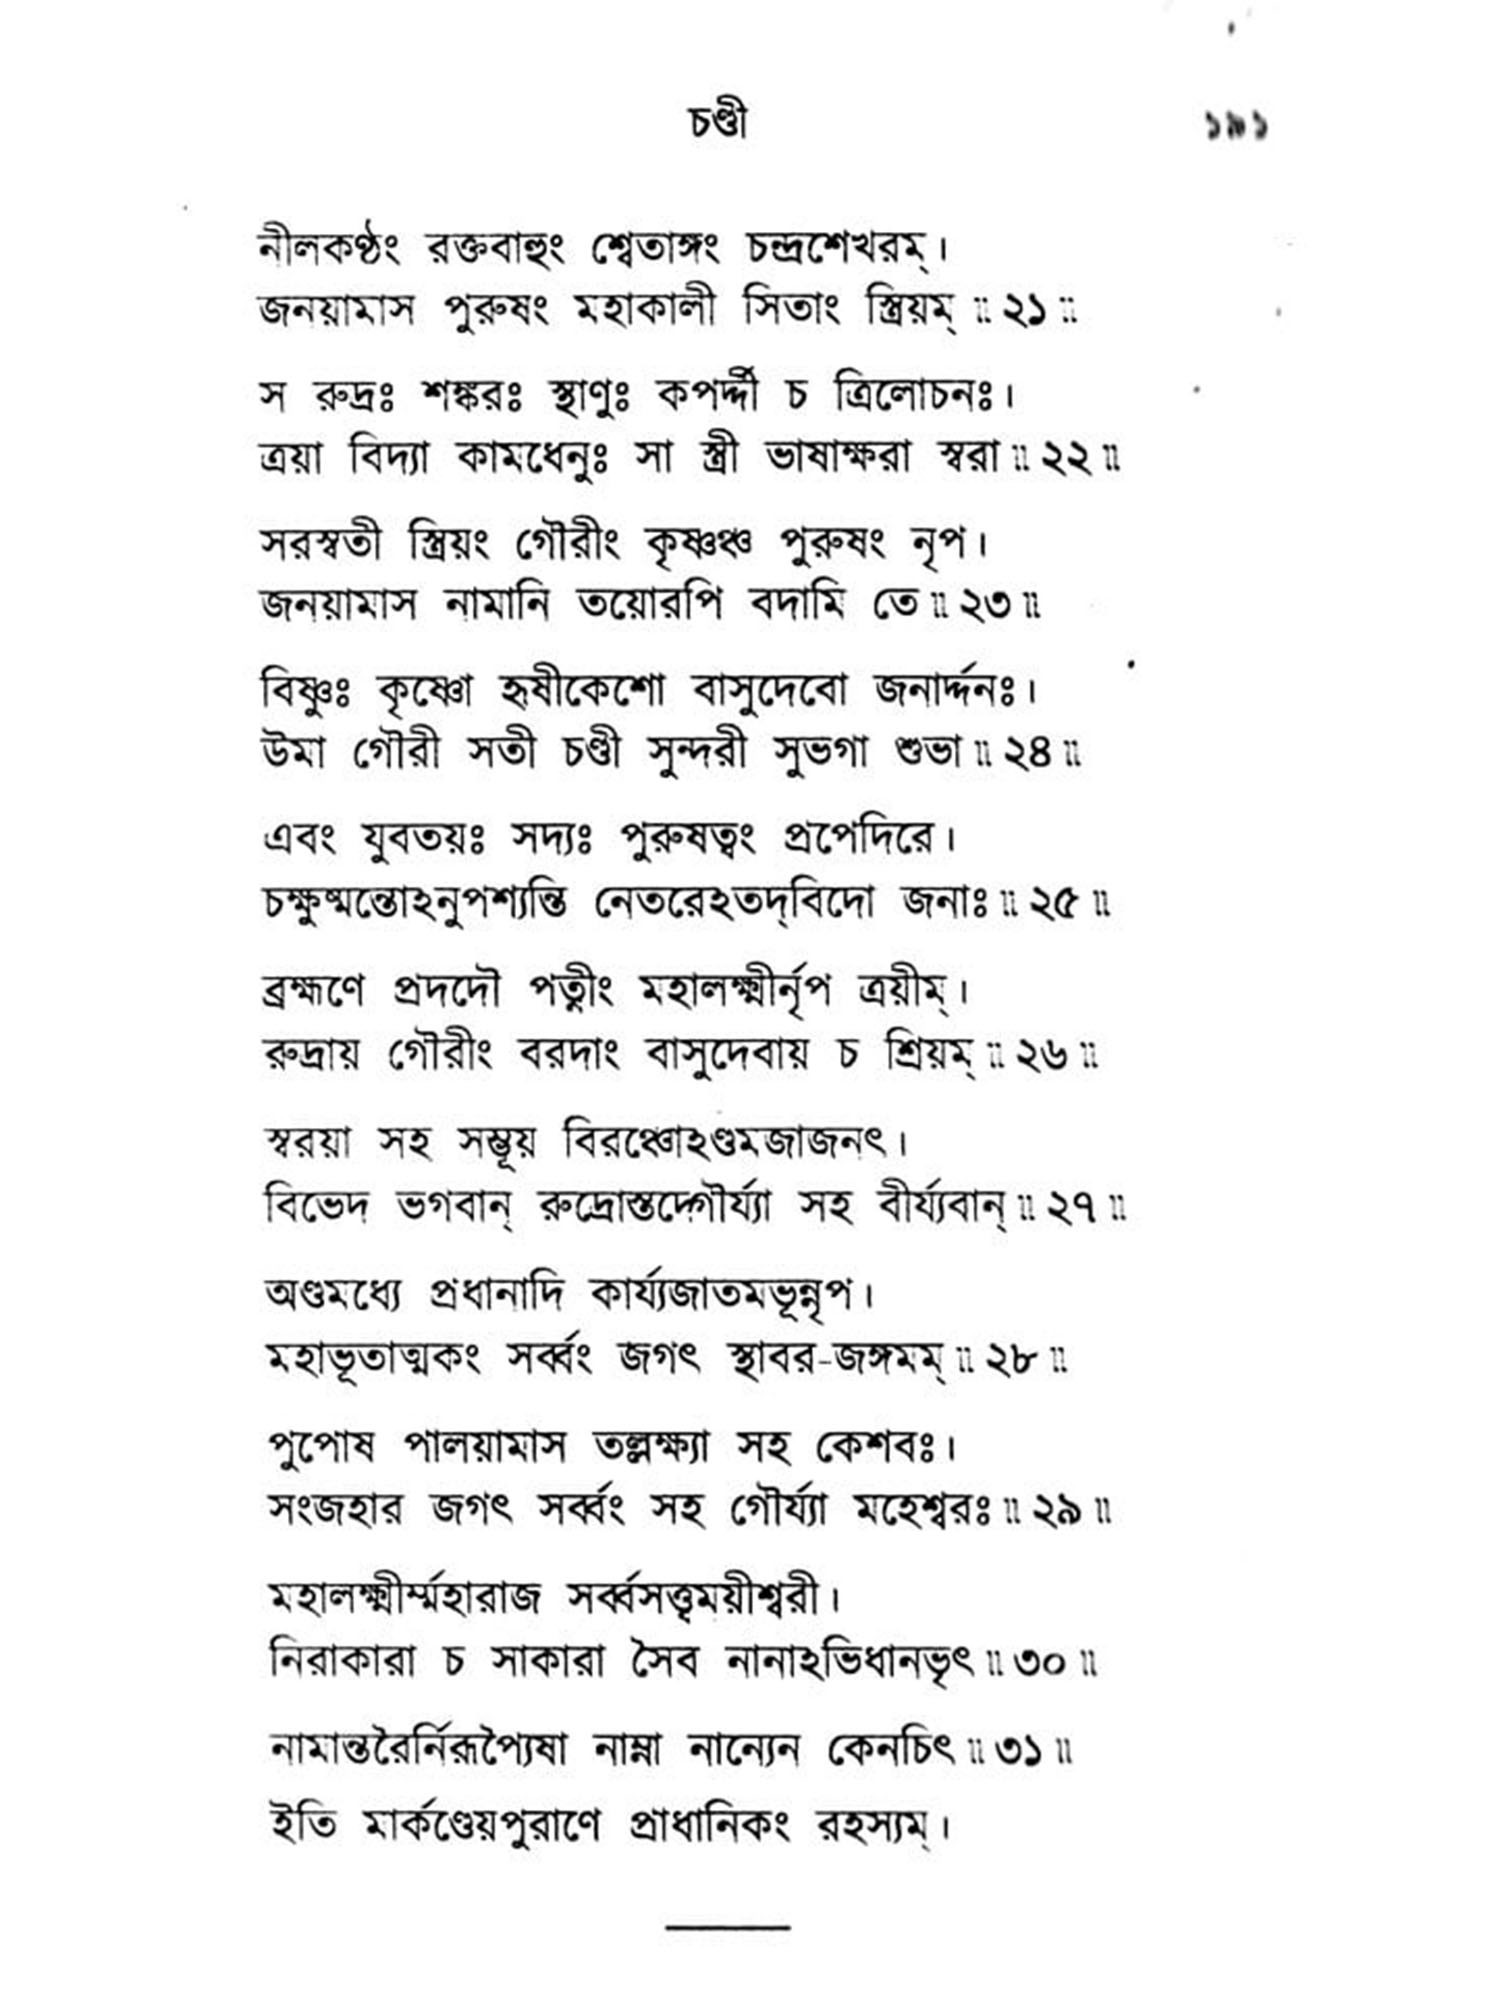 চণ্ডী
নীলকণ্ঠং রক্তবাহুং শ্বেতাঙ্গং চন্দ্রশেখরম্।
জনয়ামাস পুরুষং মহাকালী সিতাং স্ত্রিয়ম্॥ ২১॥
স রুদ্রঃ শঙ্করঃ স্থাণুঃ কপর্দ্দী চ ত্রিলোচনঃ।
ত্রয়া বিদ্যা কামধেনুঃ সা স্ত্রী ভাষাক্ষরা স্বরা॥ ২২॥
সরস্বতী স্ত্রিয়ং গৌরীং কৃষ্ণঞ্চ পুরুষং নৃপ।
জনয়ামাস নামানি তয়োরপি বদামি তে॥ ২৩॥
বিষ্ণুঃ কৃষ্ণো হৃষীকেশো বাসুদেবো জনার্দ্দনঃ।
উমা গৌরী সতী চণ্ডী সুন্দরী সুভগা শুভা॥ ২৪॥
এবং যুবতয়ঃ সদ্যঃ পুরুষত্বং প্রপেদিরে।
চক্ষুষ্মন্তোঽনুপশ্যন্তি নেতরেঽতদ্‌বিদো জনাঃ॥ ২৫॥
ব্রহ্মণে প্রদদৌ পত্নীং মহালক্ষ্মীর্নৃপ ত্রয়ীম্।
রুদ্রায় গৌরীং বরদাং বাসুদেবায় চ শ্রিয়ম্॥ ২৬॥
স্বরয়া সহ সম্ভূয় বিরঞ্চোঽণ্ডমজাজনৎ।
বিভেদ ভগবান্ রুদ্রোস্তদ্গৌর্য্যা সহ বীর্য্যবান্॥ ২৭॥
অণ্ডমধ্যে প্রধানাদি কার্য্যজাতমভূন্নৃপ।
মহাভূতাত্মকং সর্ব্বং জগৎ স্থাবর-জঙ্গমম্॥ ২৮॥
পুপোষ পালয়ামাস তল্লক্ষ্যা সহ কেশবঃ।
সংজহার জগৎ সর্ব্বং সহ গৌর্য্যা মহেশ্বরঃ॥ ২৯॥
মহালক্ষ্মীর্ম্মহারাজ সর্ব্বসত্ত্বময়ীশ্বরী।
নিরাকারা চ সাকারা সৈব নানাঽভিধানভৃৎ॥ ৩০॥
নামান্তরৈর্নিরূপ্যৈষা নাম্না নান্যেন কেনচিৎ॥ ৩১॥
ইতি মার্কণ্ডেয়পুরাণে প্রাধানিকং রহস্যম্।